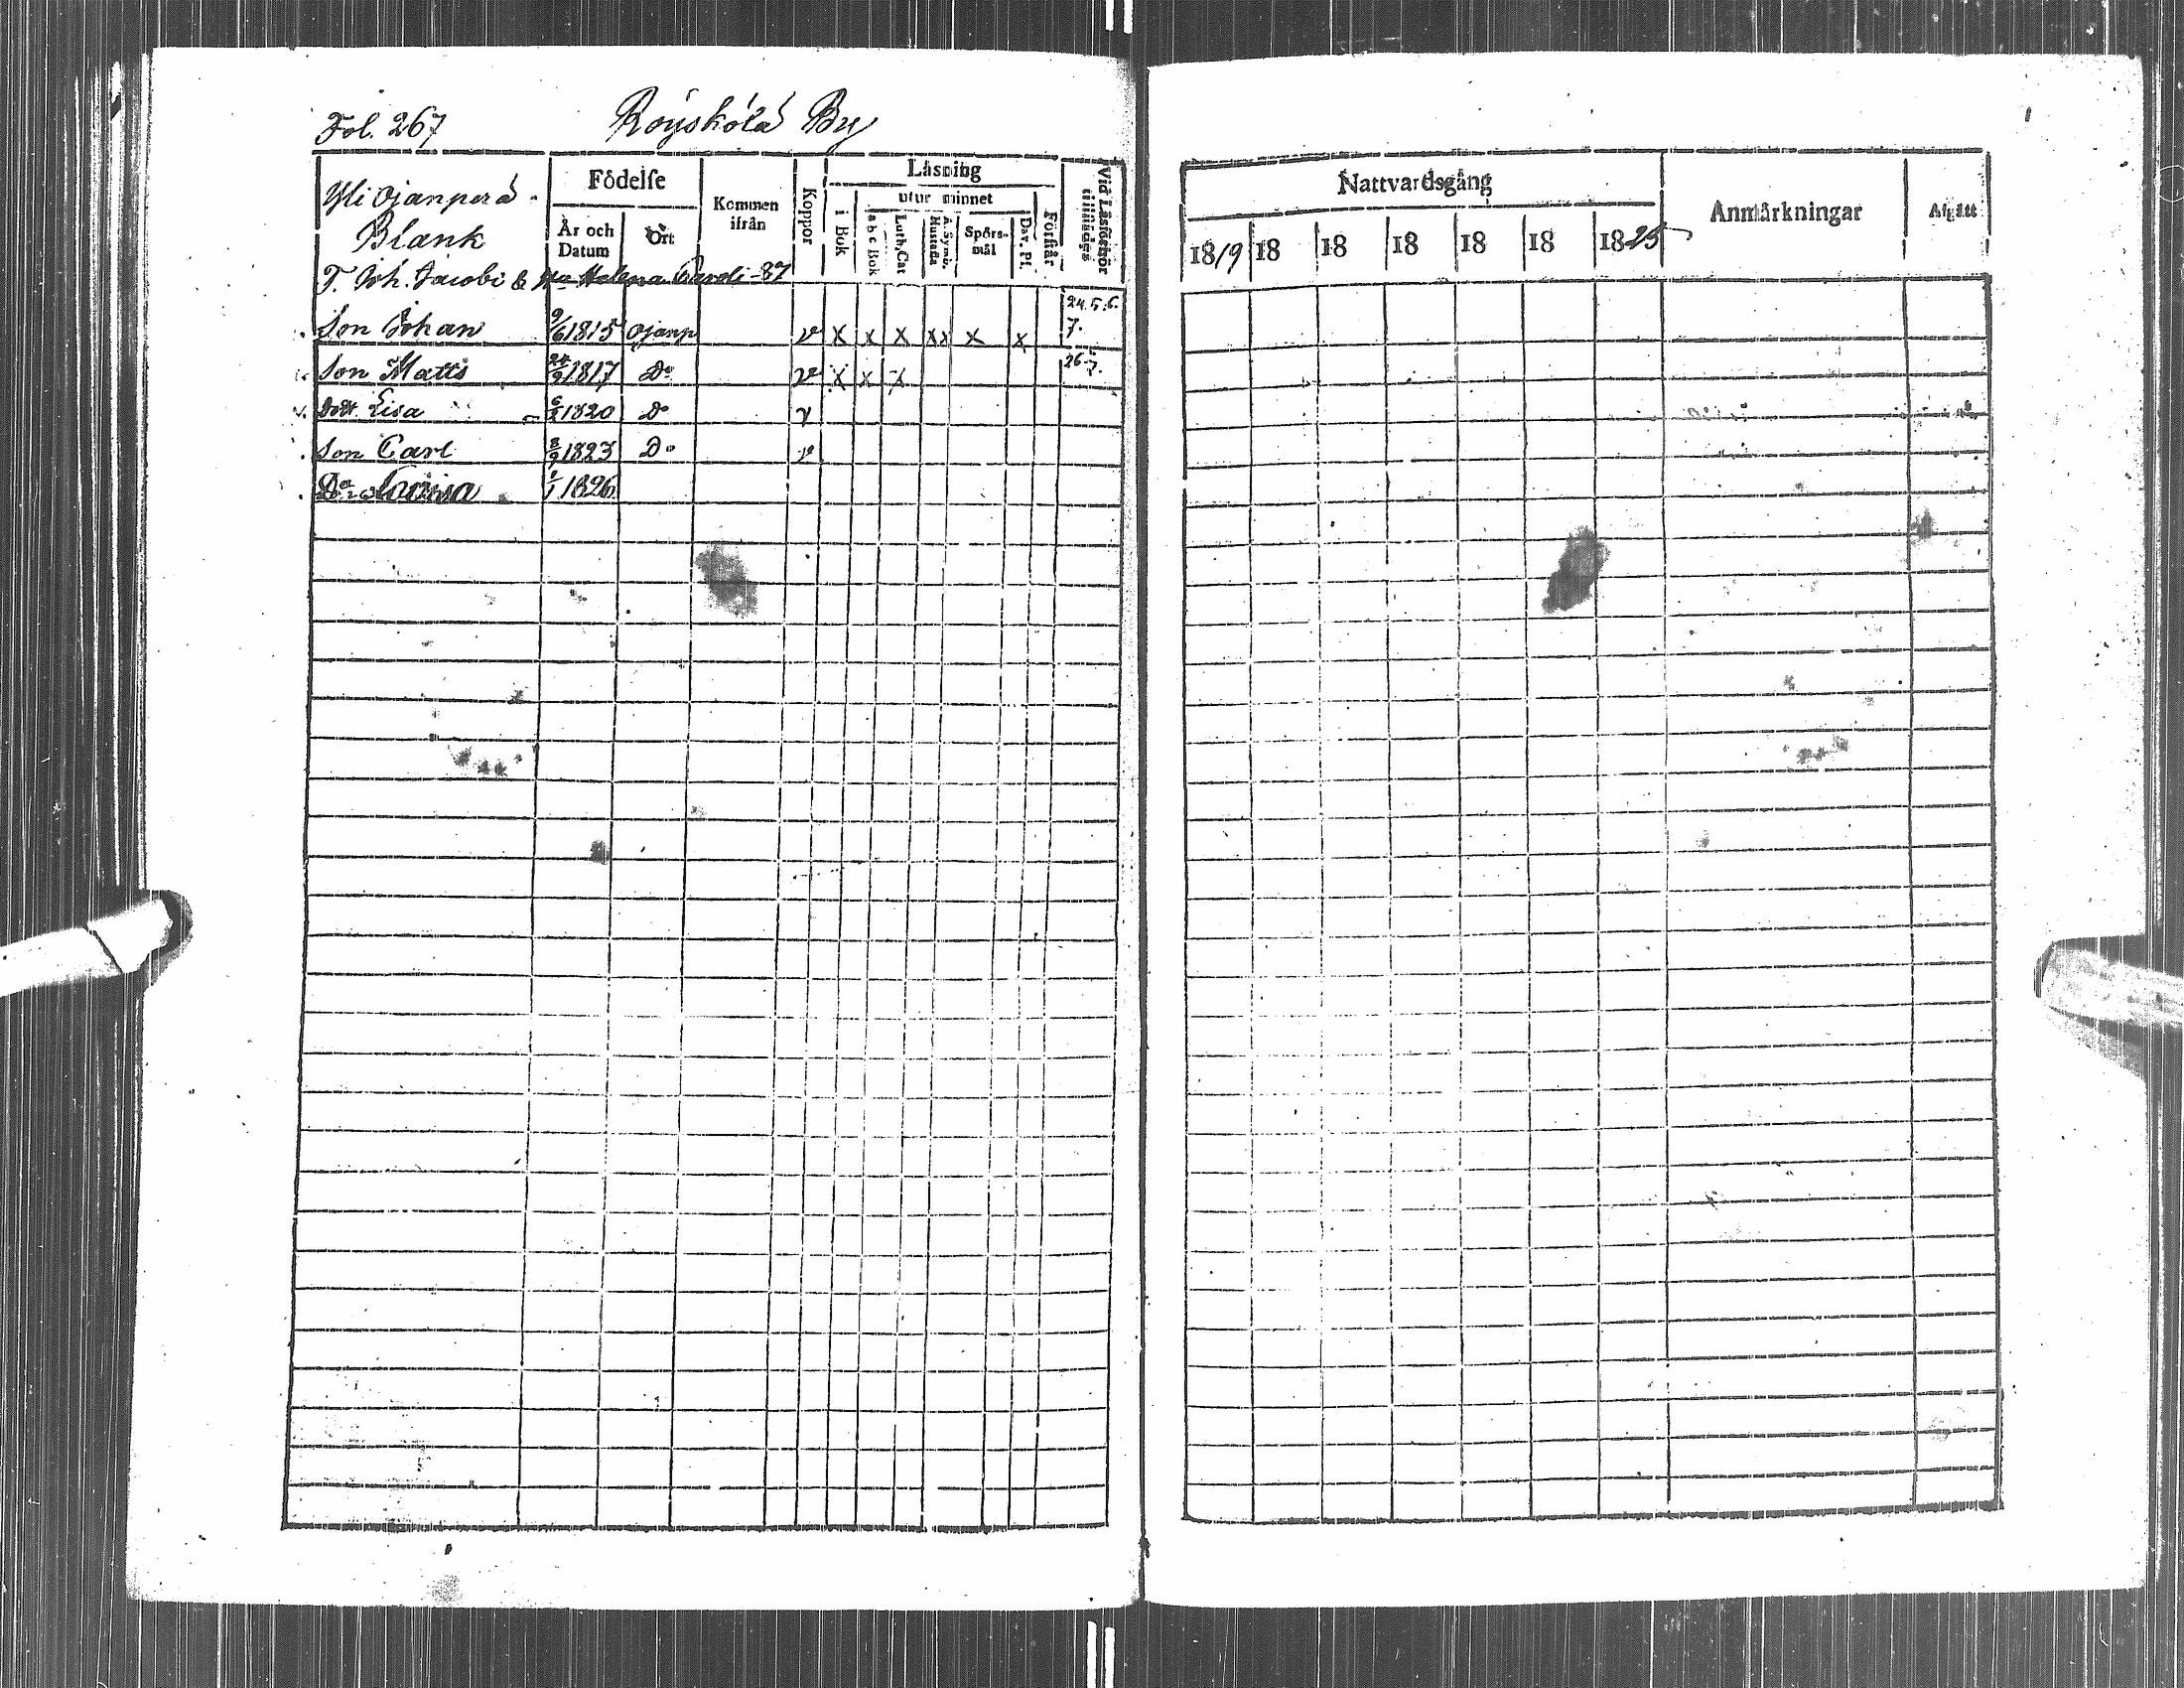 Fol. 267 Röyskölä By
Yli Ojanperä
Blank
Födelse
År och Datum
Ort
Kommen ifrån
Koppor
Läsning
i Bok
utur minnet
a b c Bok
Luth. Cat
A. Symb. Hustafla
Spörsmål
Dav. Ps.
Förstår
Vid Läsförhör tillstädes
T. Joh. Jacobi & Helena -87
Son Johan 9/6 1815 Ojanp v x x x xx x x 24.5.6.7.
Son Matts 24/9 1817 Do v x x x 26.7.
Dott. Lisa 1820 Do v
Son Carl 8/9 1823 Do v
Do Lovisa 1826
Nattvardsgång
1819 18 18 18 18 18 1825
Anmärkningar
Afgått